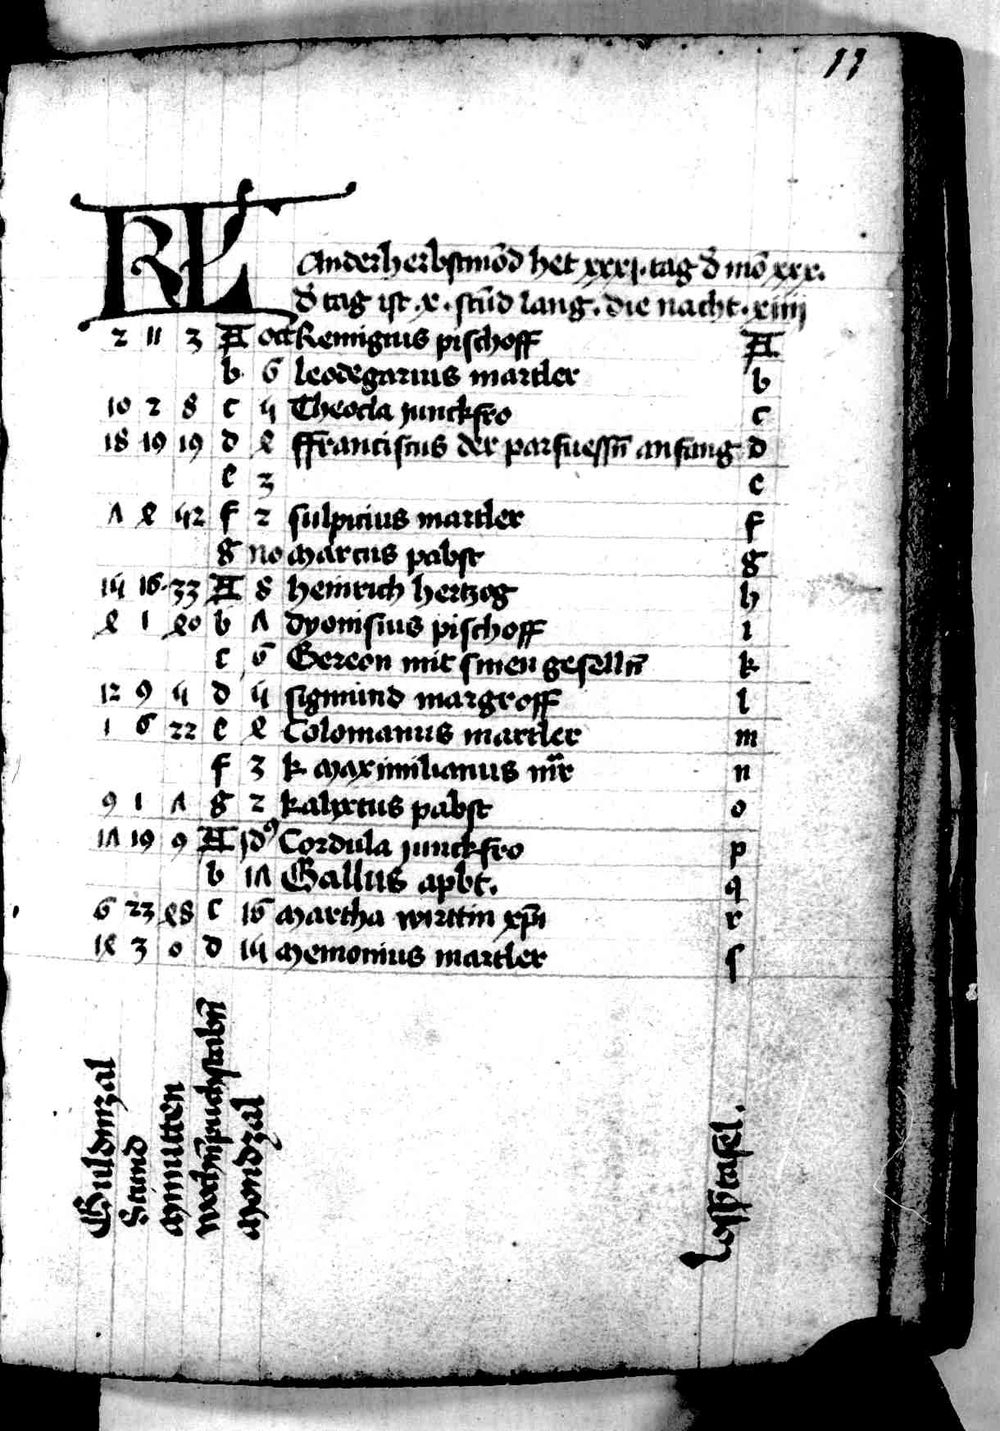 11
KL
Anderherbstmōd het xxxj. tag d̄ mō xxx.
d̄ tag ist .x. stūd lang. die nacht. xiiii
2 11 3 A oct Remigius pischoff A
b 6 leodegarius martler b
10 2 8 c 5 Theocla junckfro c
18 19 19 d 4 ffranciscus der parfuessn̄ anfang d
e 3 e
7 4 52 f 2 sulpicius martler f
g no Marcus pabst g
15 16 33 A 8 heinrich hertzog h
4 1 40 b 7 dyonisius pischoff i
c 6 Gereon mit sinen geselln̄ k
12 9 5 d 5 sigmund margroff l
1 6 22 e 4 Colomanus martler m
f 3 k Maximilianus mr̄ n
9 1 7 g 2 kalixtus pabst o
17 19 9 A jd9 Cordula junckfro p
b 17 Gallus apbt. q
6 23 48 c 16 Martha wirttin xp̄i r
14 3 0 d 15 Memonius martler s
Guldinzal
Stund
Minutten
wochn̄puchstabn̄
Mondzal
Losstafel.